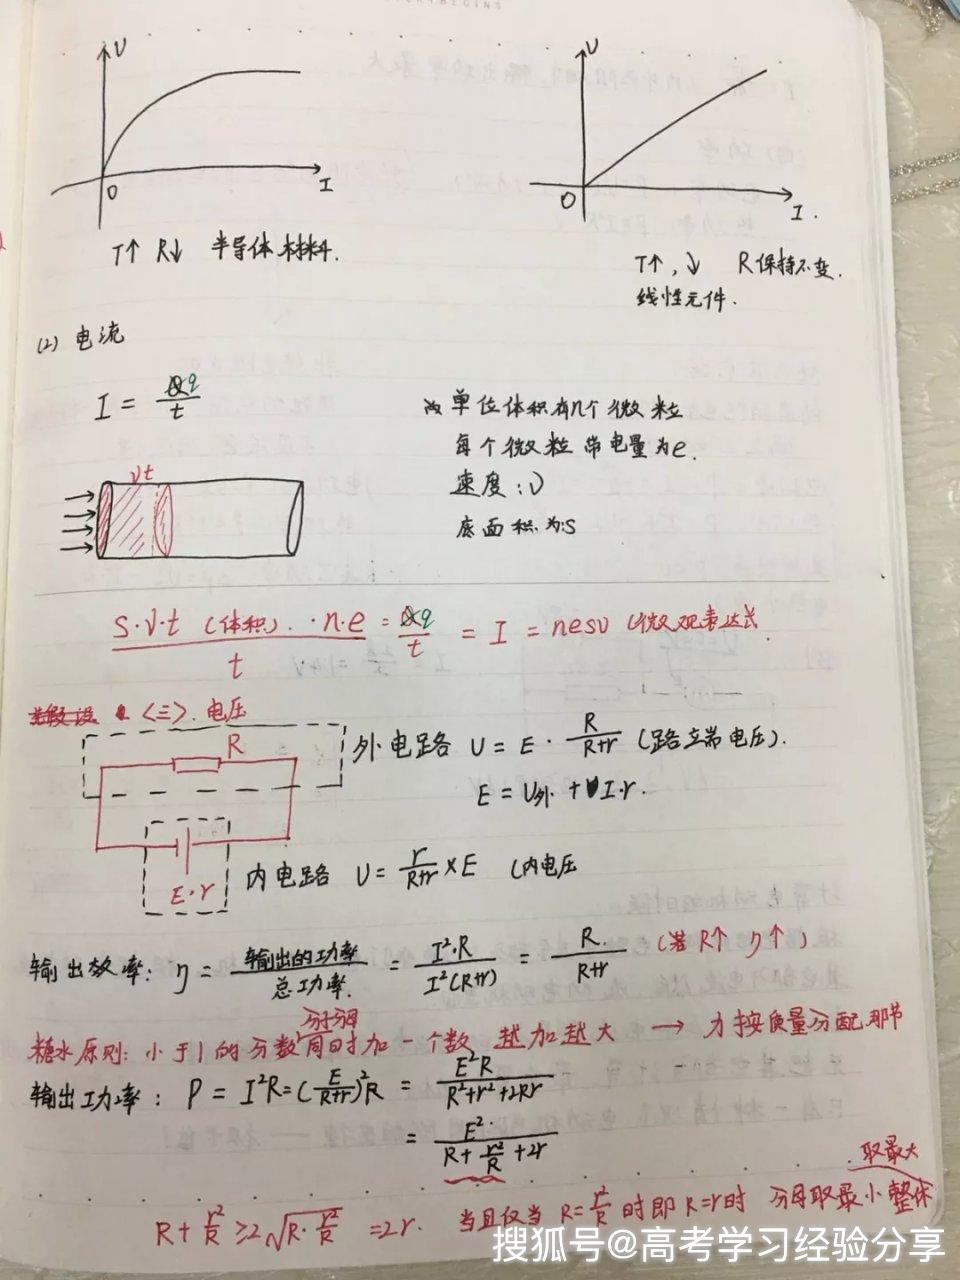 U
I
O
T↑ R↓ 半导体材料.
U
O
I.
T↑,↓ R保持不变.
线性元件.
(2) 电流
I = q/t
单位体积有n个微粒
每个微粒带电量为e.
速度:v
底面积为s
vt
s·v·t (体积)·n·e / t = q/t = I = nesv (微观表达式
<三>. 电压
R
E·r
外电路 U = E · R/(R+r) (路端电压).
E = U外 + I·r.
内电路 U = r/(R+r) × E (内电压
输出效率: η = 输出的功率/总功率. = I²·R/I²(R+r) = R/(R+r) (若R↑ η↑)
分子分母
糖水原则: 小于1的分数同时加一个数 越加越大 → 力按质量分配那节
输出功率: P = I²R = (E/(R+r))²R = E²R/(R²+r²+2Rr)
= E²/(R + r²/R + 2r)
取最大
R + r²/R ≥ 2√(R·r²/R) = 2r. 当且仅当 R = r²/R 时即 R=r时 分母取最小 整体
搜狐号@高考学习经验分享